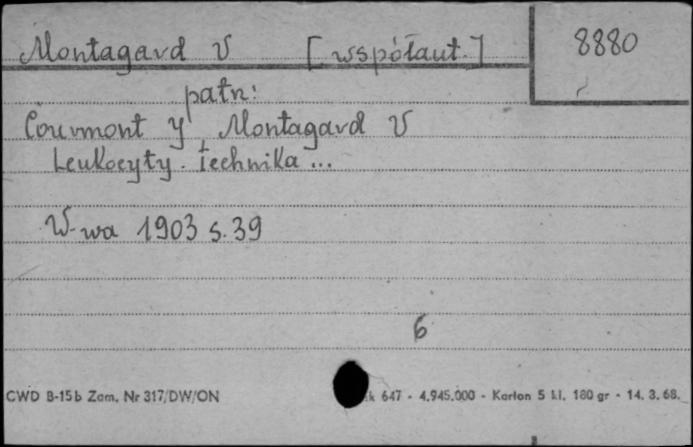 Montagard V [współaut.] 8880
patrz:
Courmont J, Montagard V
Leukocyty. Technika ...
W-wa 1903 s. 39
6
CWD B-15b Zam. Nr 317/DW/ON 647 - 4.945.000 - Karton 5 kl. 180 gr - 14. 3. 68.